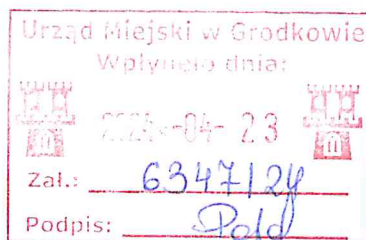 Urząd Miejski w Grodkowie
Wpłynęło dnia:
2024 -04- 23
Zał.: 6347/24
Podpis: